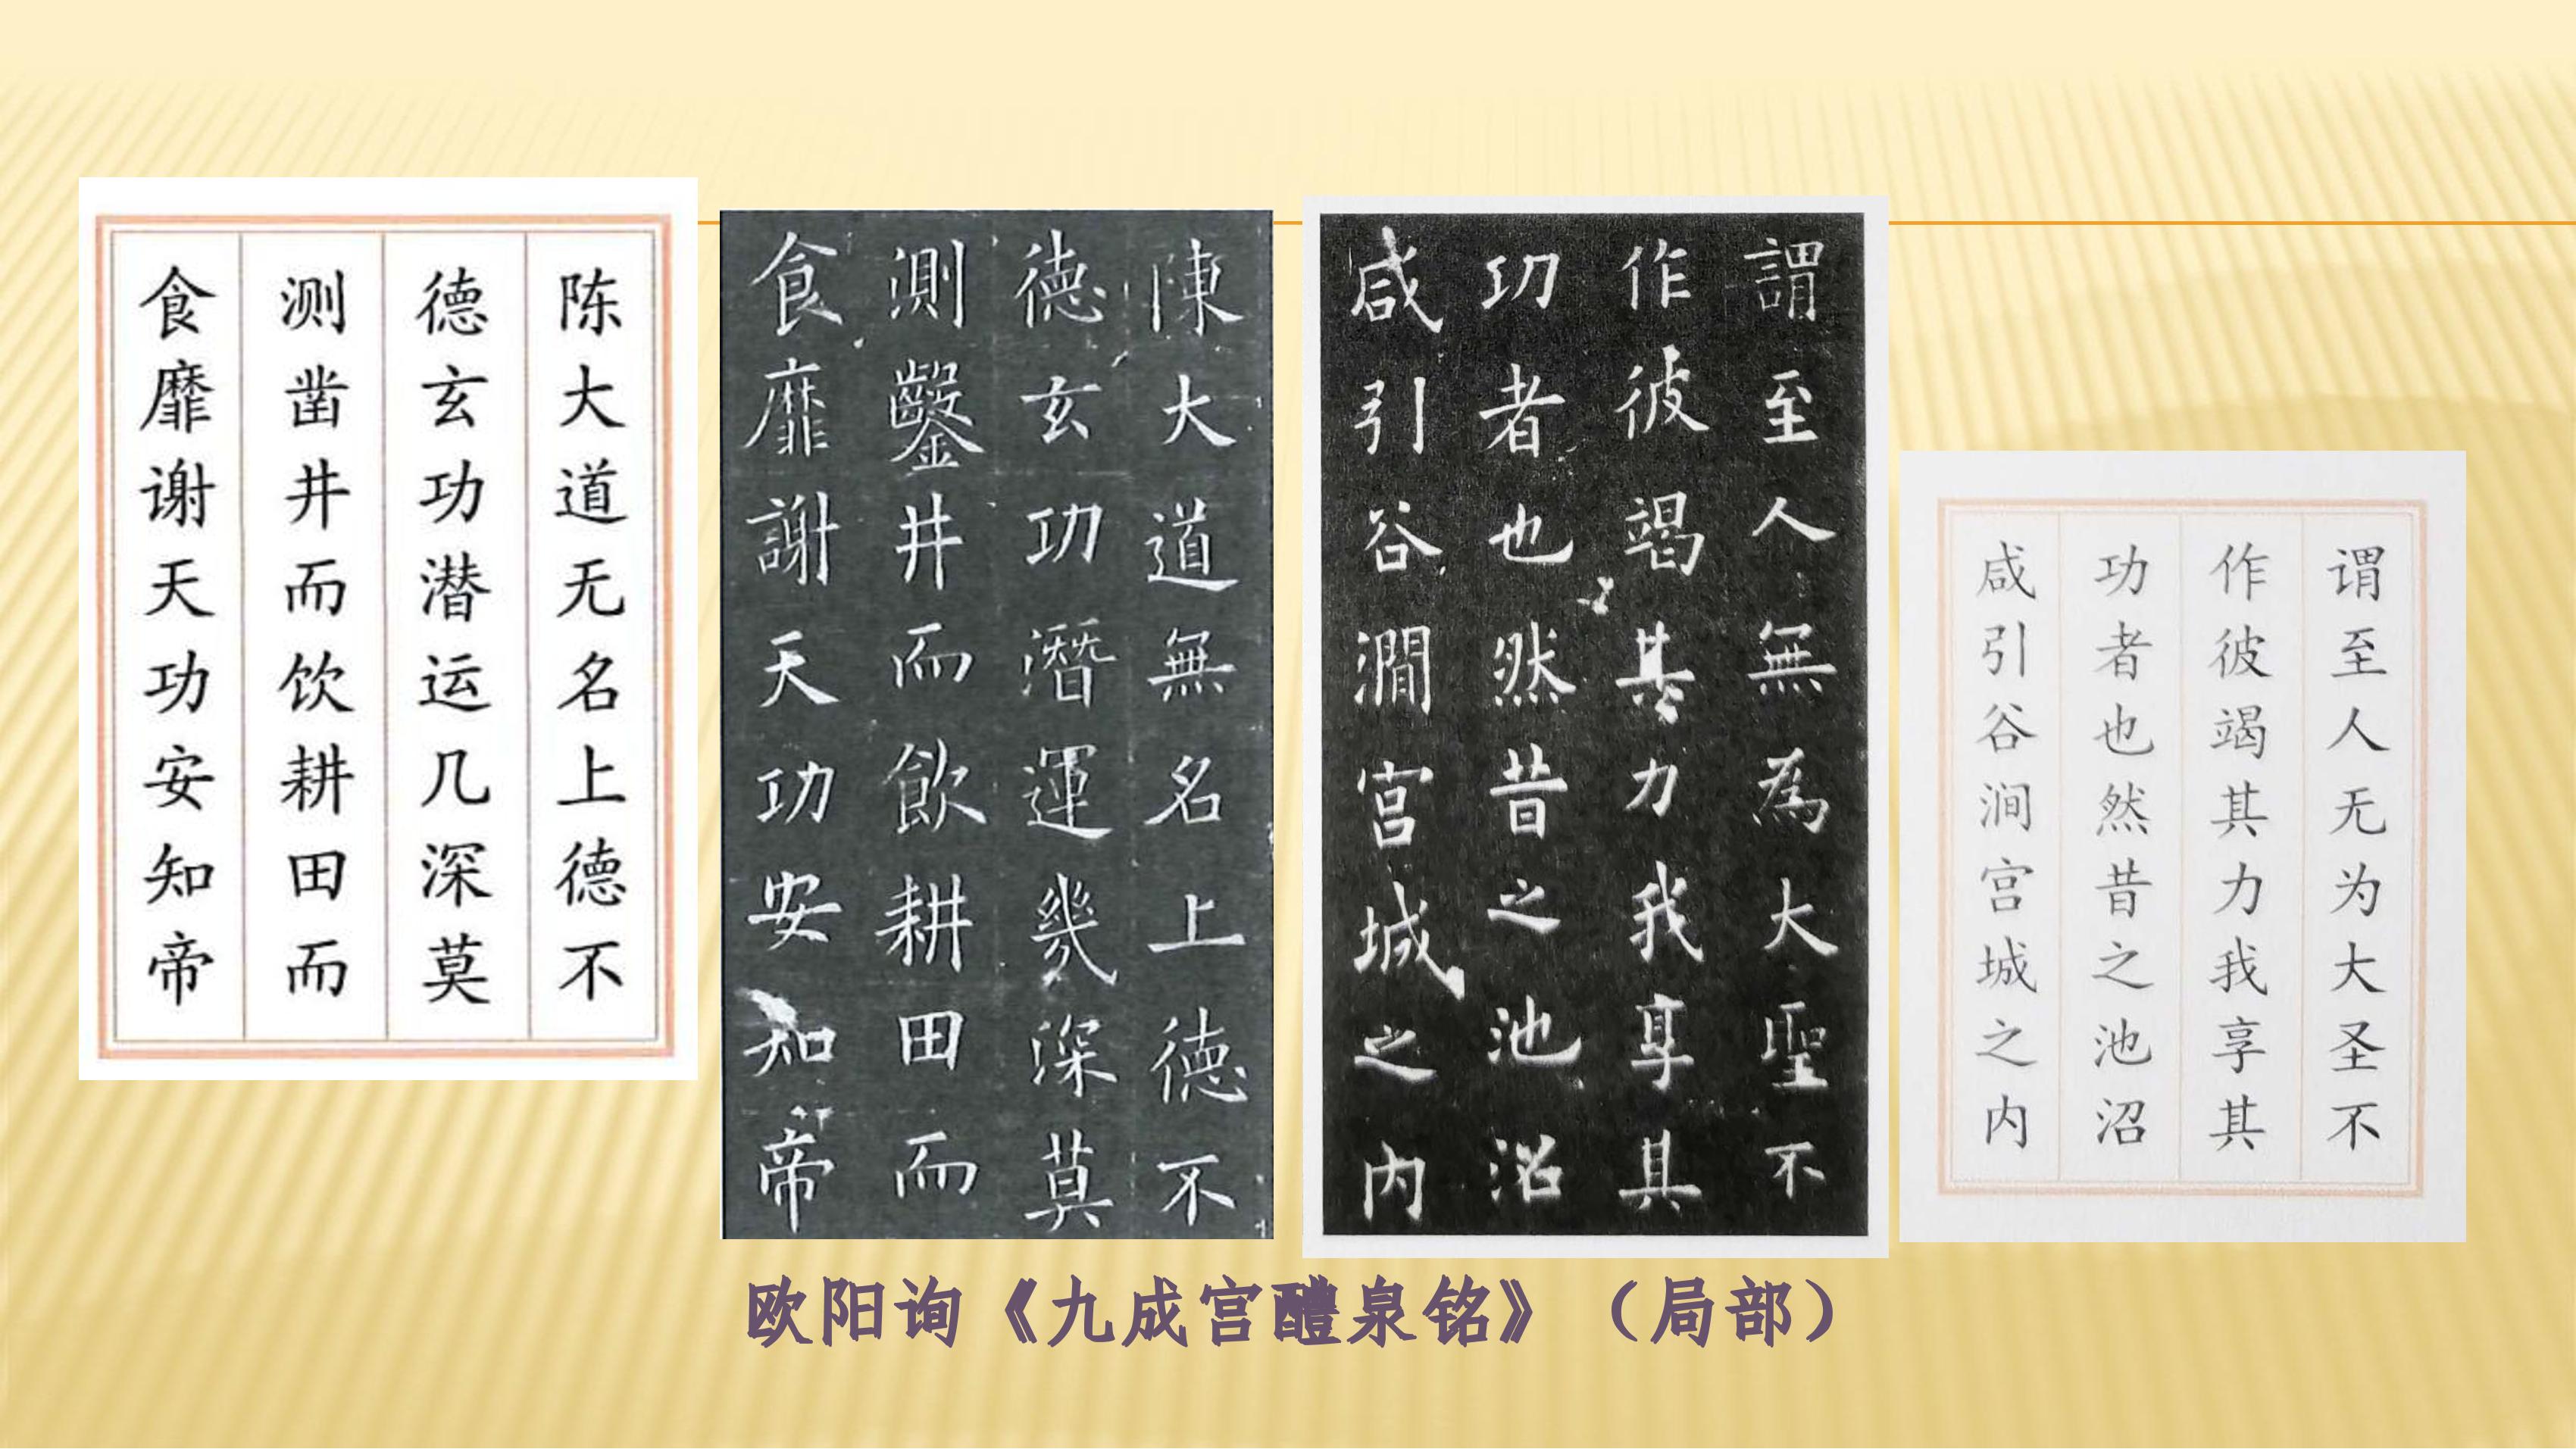 陈大道无名上德不
德玄功潜运几深莫
测凿井而饮耕田而
食靡谢天功安知帝
陳大道無名上德不
德玄功潛運幾深莫
測鑿井而飲耕田而
食靡謝天功安知帝
謂至人無為大聖不
作彼竭其力我享其
功者也然昔之池沼
咸引谷澗宮城之内
谓至人无为大圣不
作彼竭其力我享其
功者也然昔之池沼
咸引谷涧宫城之内
欧阳询《九成宫醴泉铭》（局部）